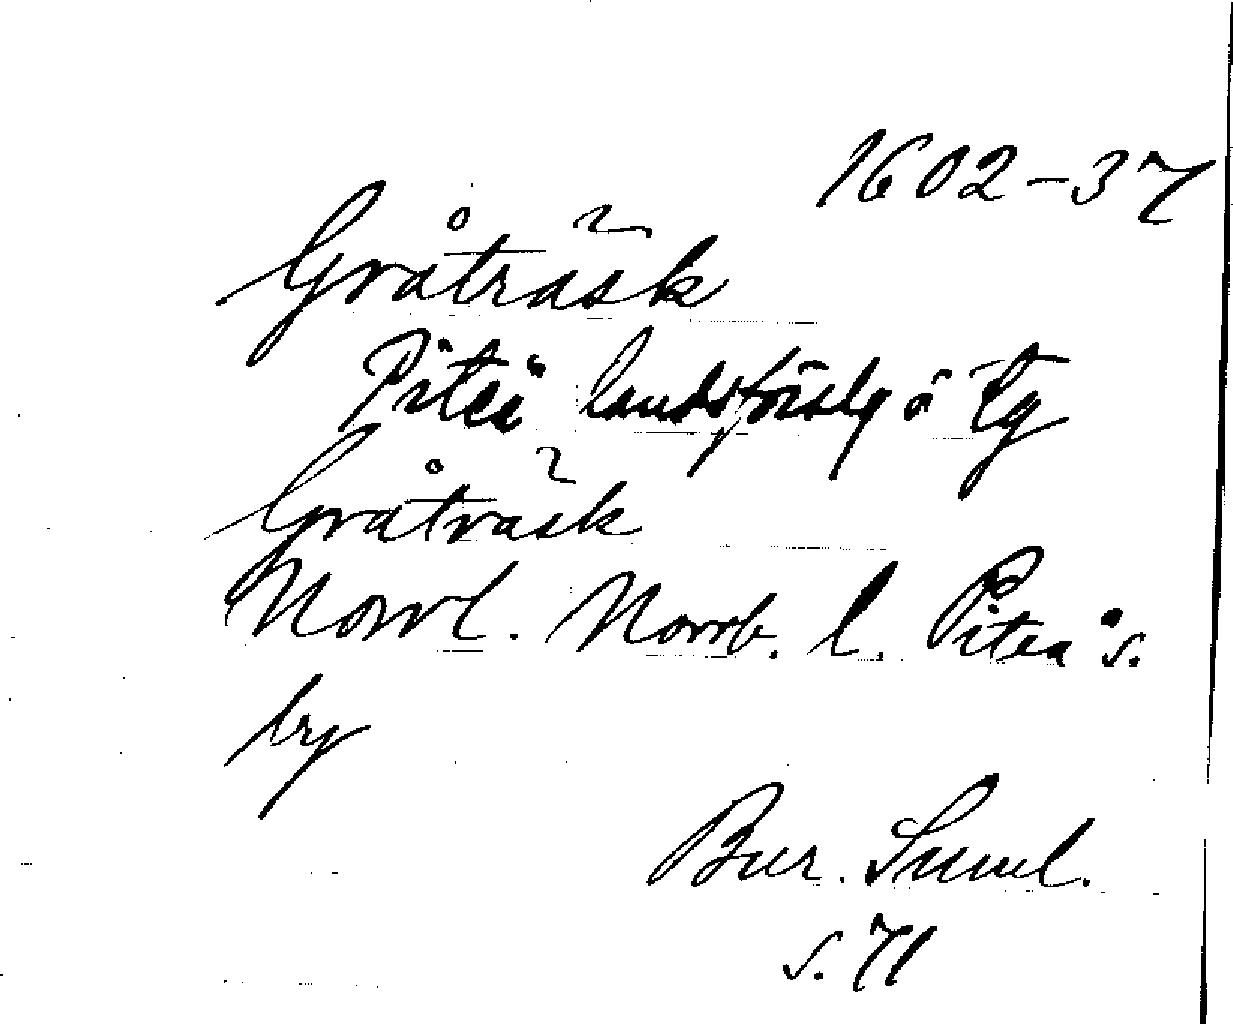 1602-37
Gråträsk
Piteå landsförslg o tg
Gråträsk
Norrl. Norrb. l. Piteå s.
by
Bur. Suml.
s. 71